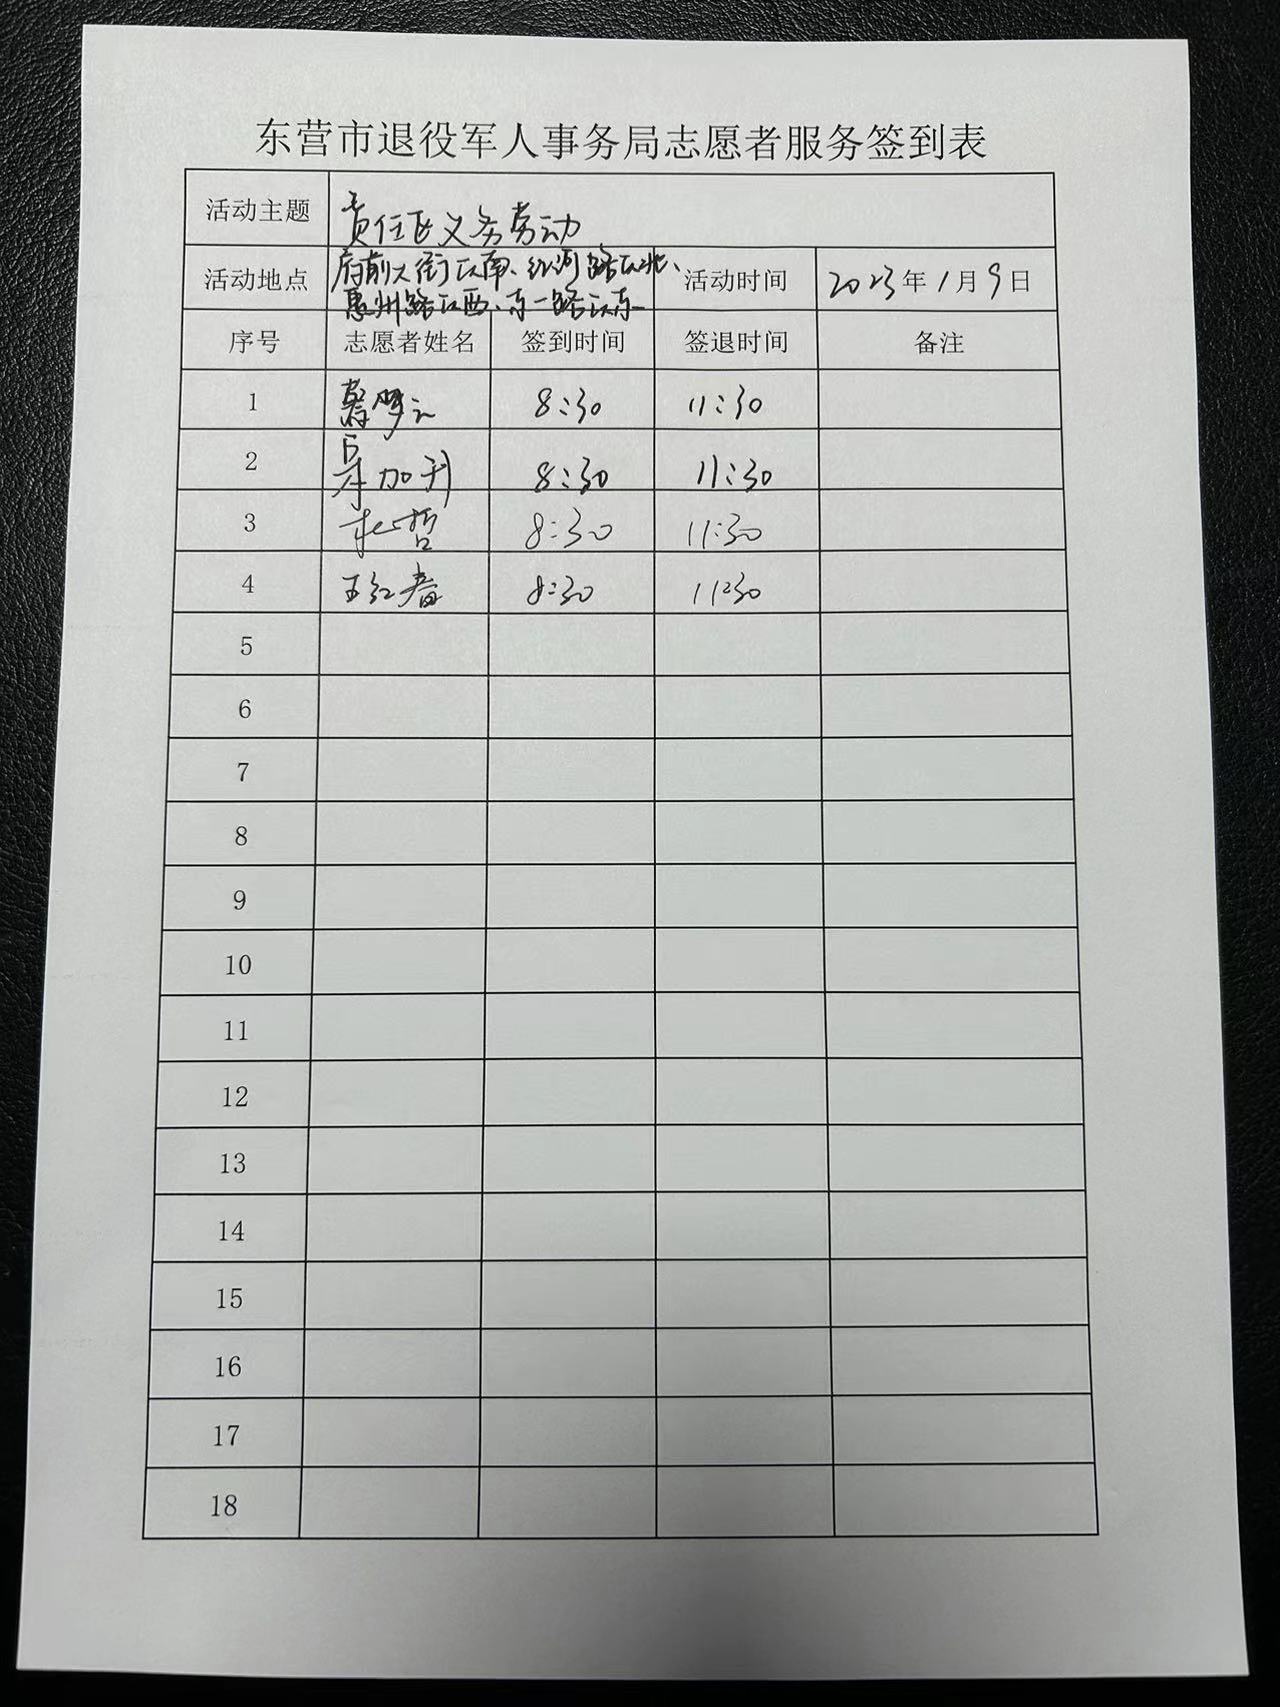 东营市退役军人事务局志愿者服务签到表
活动主题 责任区义务劳动
活动地点 府前大街以南、红河路以北、惠州路以西、东一路以东 活动时间 2023年1月9日
序号 志愿者姓名 签到时间 签退时间 备注
1 8:30 11:30
2 加利 8:30 11:30
3 杜哲 8:30 11:30
4 王红春 8:30 11:30
5
6
7
8
9
10
11
12
13
14
15
16
17
18